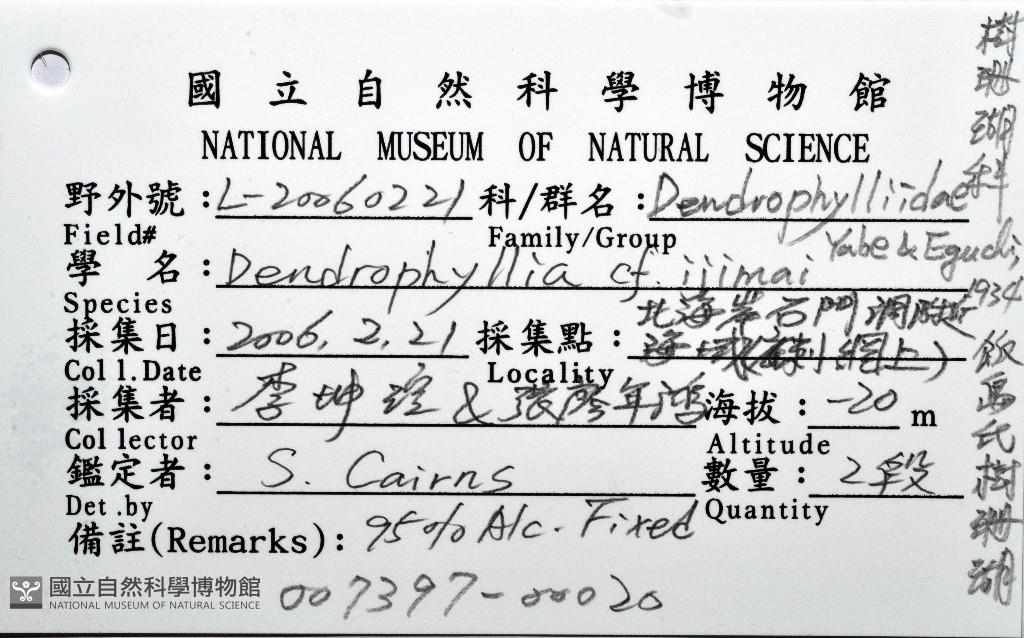 國立自然科學博物館
NATIONAL MUSEUM OF NATURAL SCIENCE
野外號：L-20060221 科/群名：Dendrophylliidae
Field# Family/Group
學 名：Dendrophyllia cf. ijimai Yabe & Eguchi, 1934
Species
採集日：2006. 2. 21 採集點：北海岸石門洞附近
海域(刺網上)
Coll.Date Locality
採集者：李坤瑄 & 張廖年鴻 海拔：-20 m
Collector Altitude
鑑定者：S. Cairns 數量：2段
Det.by Quantity
備註(Remarks)：95% Alc. Fixed
007397-00020
樹珊瑚科
飯島氏樹珊瑚
國立自然科學博物館
NATIONAL MUSEUM OF NATURAL SCIENCE